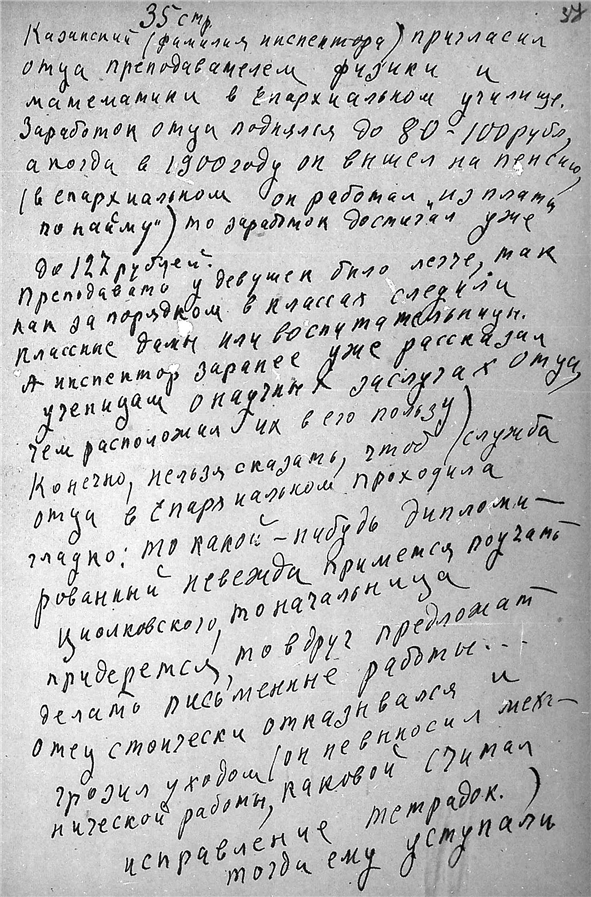 35 стр
37
Казанский (фамилия инспектора) пригласил
отца преподавателем физики и
математики в Епархиальном училище.
Заработок отца поднялся до 80-100 рубл,
а когда в 1900 году он вышел на пенсию,
(в епархиальном он работал „из платы
по найму") то заработок достигал уже
до 127 рублей.
Преподавать у девушек было легче, так
как за порядком в классах следили
классные дамы или воспитательницы.
А инспектор заранее уже рассказал
ученицам о научных заслугах отца,
чем расположил их в его пользу)
Конечно, нельзя сказать, чтоб служба
отца в Епархиальном проходила
гладко: то какой-нибудь дипломи-
рованный невежда примется поучать
Циолковского, то начальница
придерется, то вдруг предложат
делать письменные работы...
Отец стоически отказывался и
грозил уходом (он не выносил меха-
нической работы, каковой считал
исправление тетрадок.)
тогда ему уступали